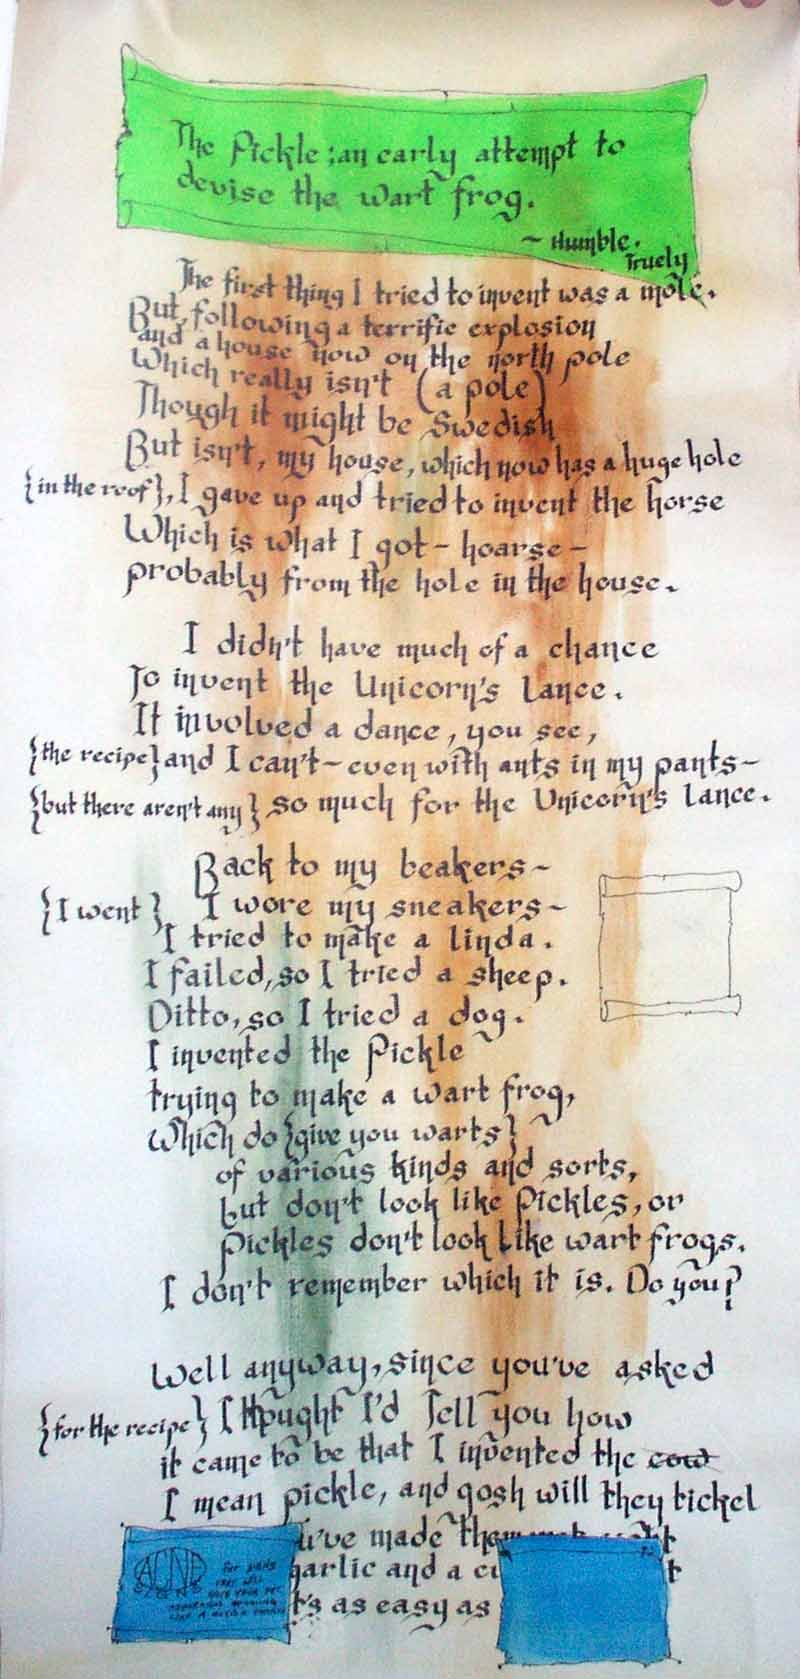 The Pickle: an early attempt to
devise the wart frog.
~ Humble.
Truely
The first thing I tried to invent was a mole.
But, following a terrific explosion
and a house now on the north pole
Which really isn't (a pole)
Though it might be Swedish
But isn't, my house, which now has a huge hole
{in the roof}, I gave up and tried to invent the horse
Which is what I got - hoarse -
probably from the hole in the house.
I didn't have much of a chance
To invent the Unicorn's Lance.
It involved a dance, you see,
{the recipe} and I can't - even with ants in my pants -
{but there aren't any} so much for the Unicorn's Lance.
Back to my beakers ~
{I went} I wore my sneakers ~
I tried to make a linda.
I failed, so I tried a sheep.
Ditto, so I tried a dog.
I invented the Pickle
trying to make a wart frog,
Which do {give you warts}
of various kinds and sorts,
but don't look like Pickles, or
Pickles don't look like wart frogs.
I don't remember which it is. Do you?
Well anyway, since you've asked
{for the recipe} I thought I'd Tell you how
it came to be that I invented the cow
I mean pickle, and gosh will they tickel
u've made them
garlic and a cu
t's as easy as
ACNE
SIGNS
For signs
that will